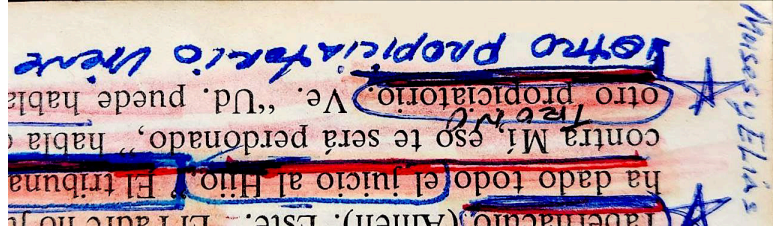 Tabernáculo (Amén). Este. El Padre no ju
ha dado todo el juicio al Hijo." El tribuna
contra Mí, eso te será perdonado," habla
TRONO
otro propiciatorio. Ve. "Ud. puede habla
otro propiciatorio viene
Moises y Elias